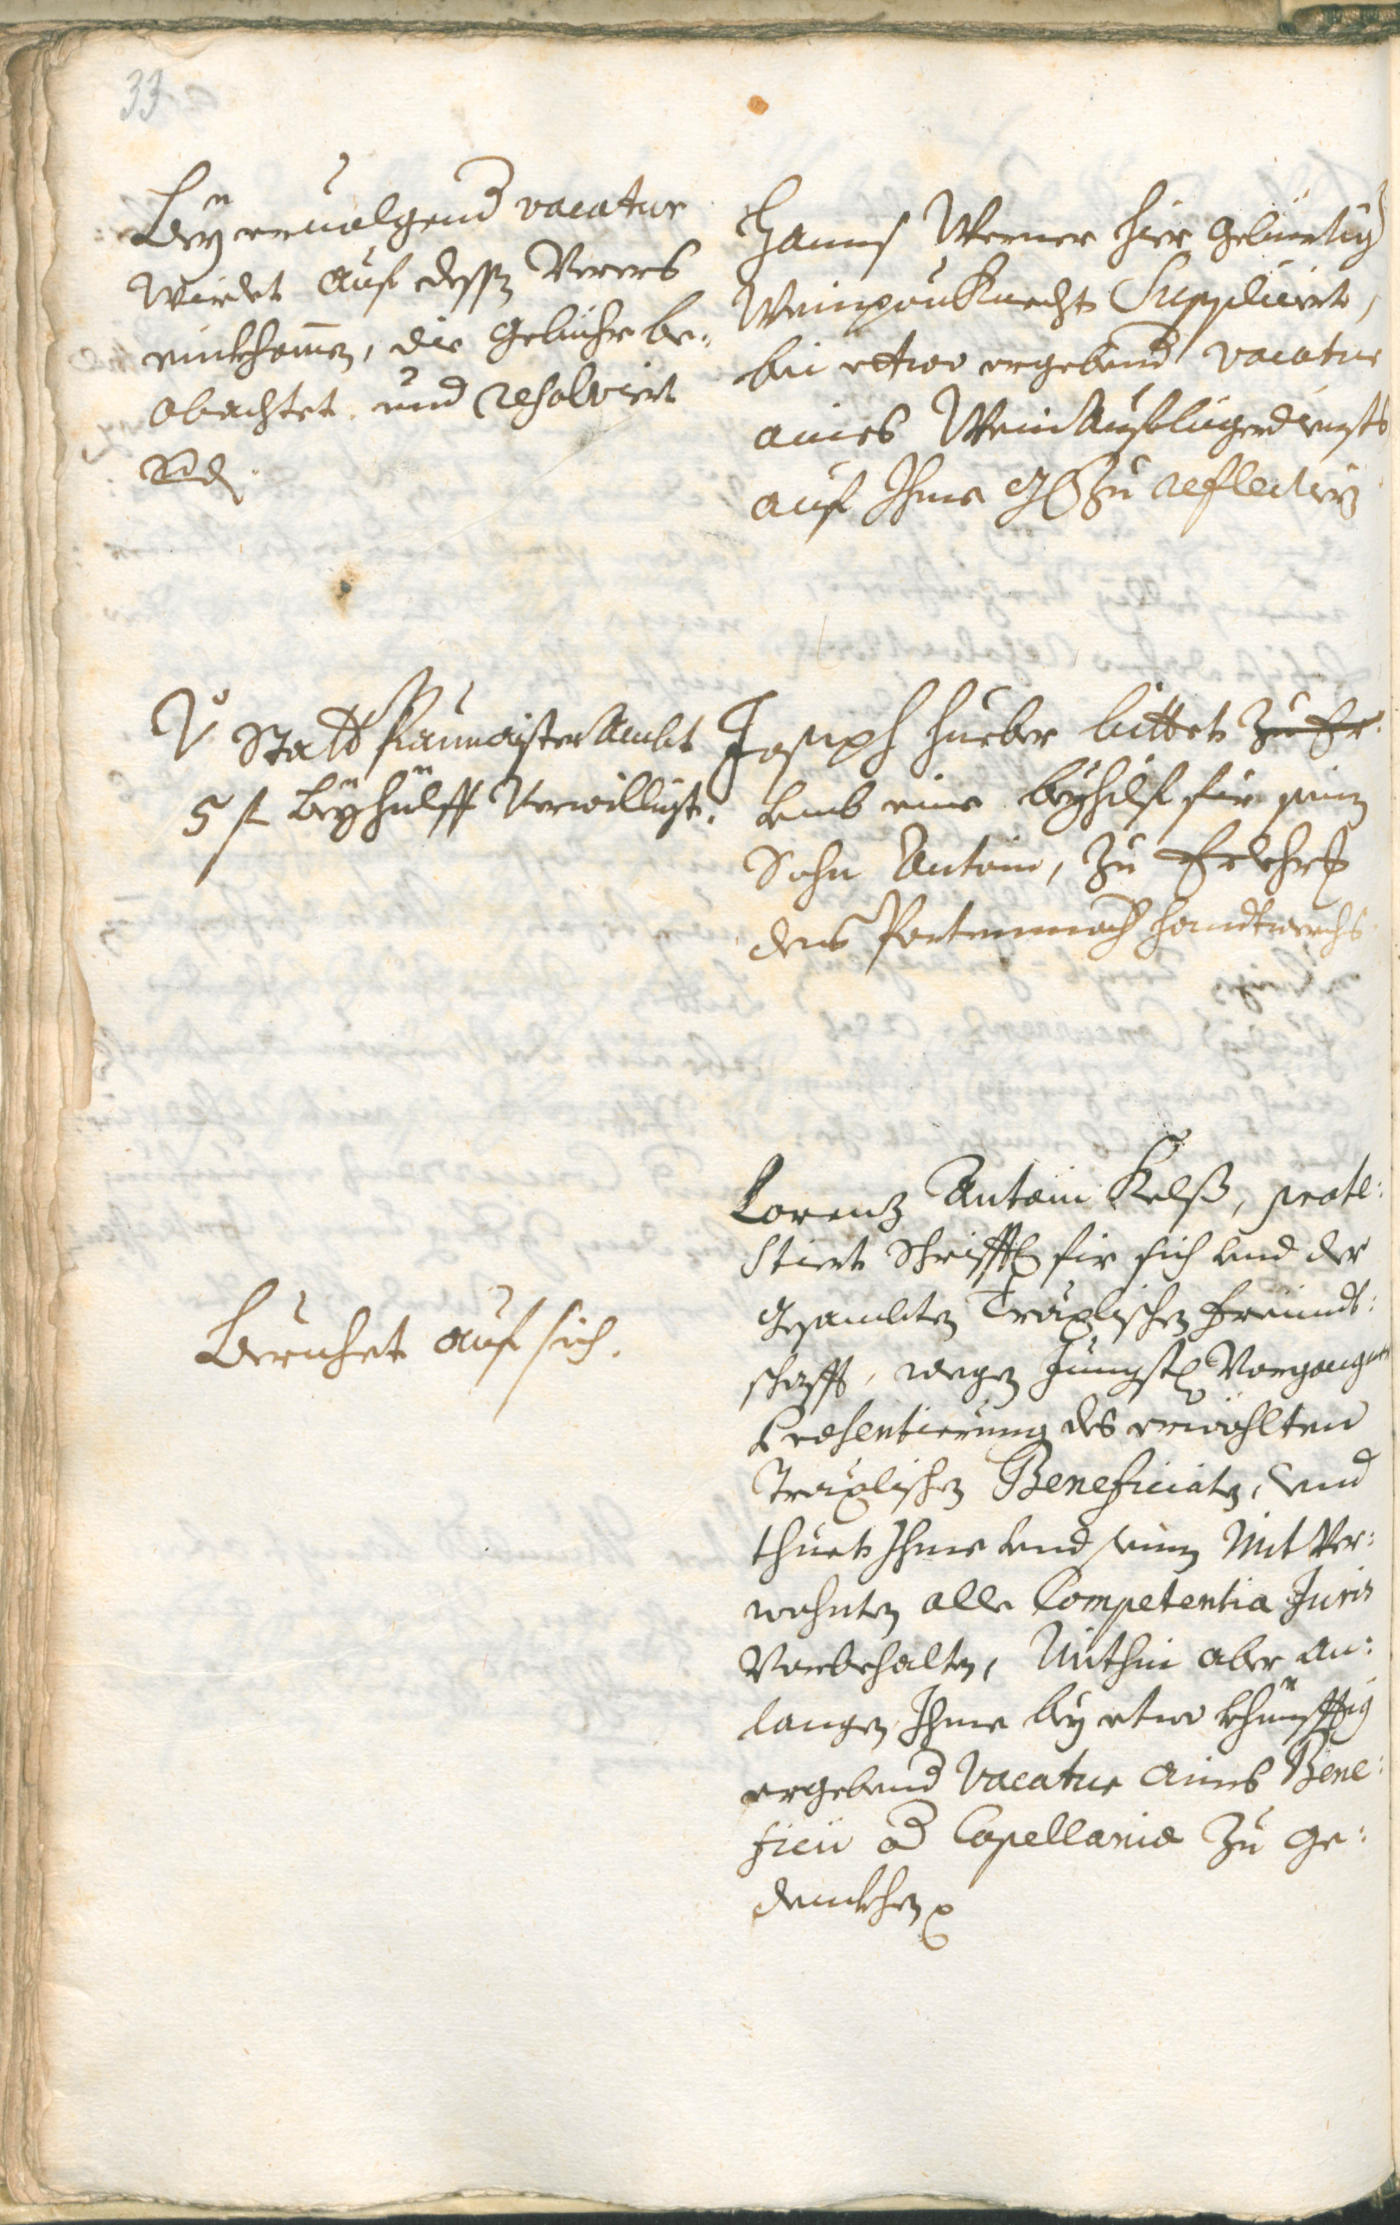 33
Bey ervolgend vacatur
wirdet auf dessen Verers
einkhomen, die gebühr be:
obachtet und resolvirt
Hanns Werner hier gebürtig
Weinpau Knecht Suppliciert,
bei etwo ergebend vacatur
aines Wein Auflegerdiensts
auf Ihme zu reflectirn
Statt Paumaister Ambt
5 f Beyhülff Verwilligt.
Joseph Hueber bittet zu Er
umb eine beyhilf für sein
Sohn Antoni, zu Erlehrn
dens Portenmach handtwerchs
Beruhet auf sich.
Lorenz Antoni Kelß, prote:
stiert Schrifftl für sich und der
gesambten Träxlischen freundt:
schafft, wegen Jüngst Vorgangner
Præsentierung des erwöhlten
Träxlischen Beneficiaten, und
thuet Ihme und seinen Mit Ver:
wohnten alle Competentia Juris
Vorbehalten, Mithin aber an:
langen Ihme bey etwo khünfftig
ergebend Vacatur aines Bene:
ficii od Capellaniæ zu ge:
denkhen